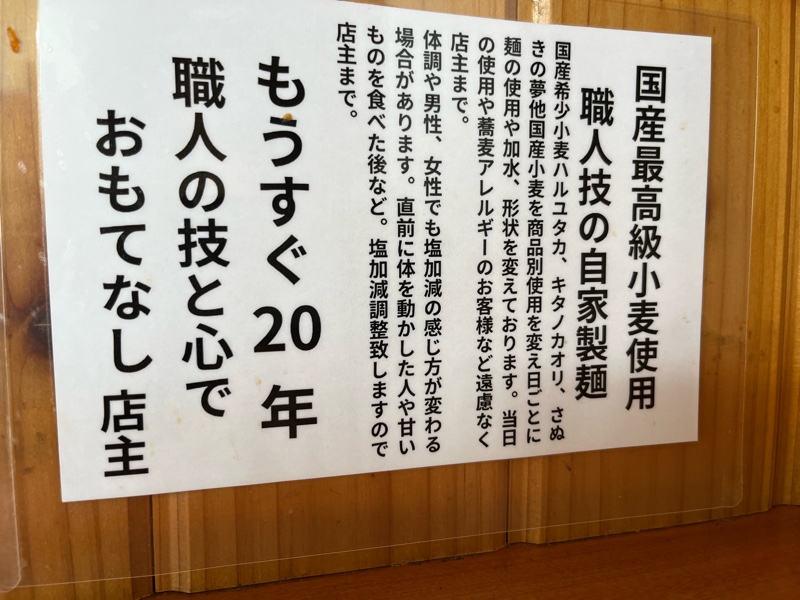 国産最高級小麦使用
職人技の自家製麺
国産希少小麦ハルユタカ、キタノカオリ、さぬ
きの夢他国産小麦を商品別使用を変え日ごとに
麺の使用や加水、形状を変えております。当日
の使用や蕎麦アレルギーのお客様など遠慮なく
店主まで。
体調や男性、女性でも塩加減の感じ方が変わる
場合があります。直前に体を動かした人や甘い
ものを食べた後など。塩加減調整致しますので
店主まで。
もうすぐ20年
職人の技と心で
おもてなし 店主